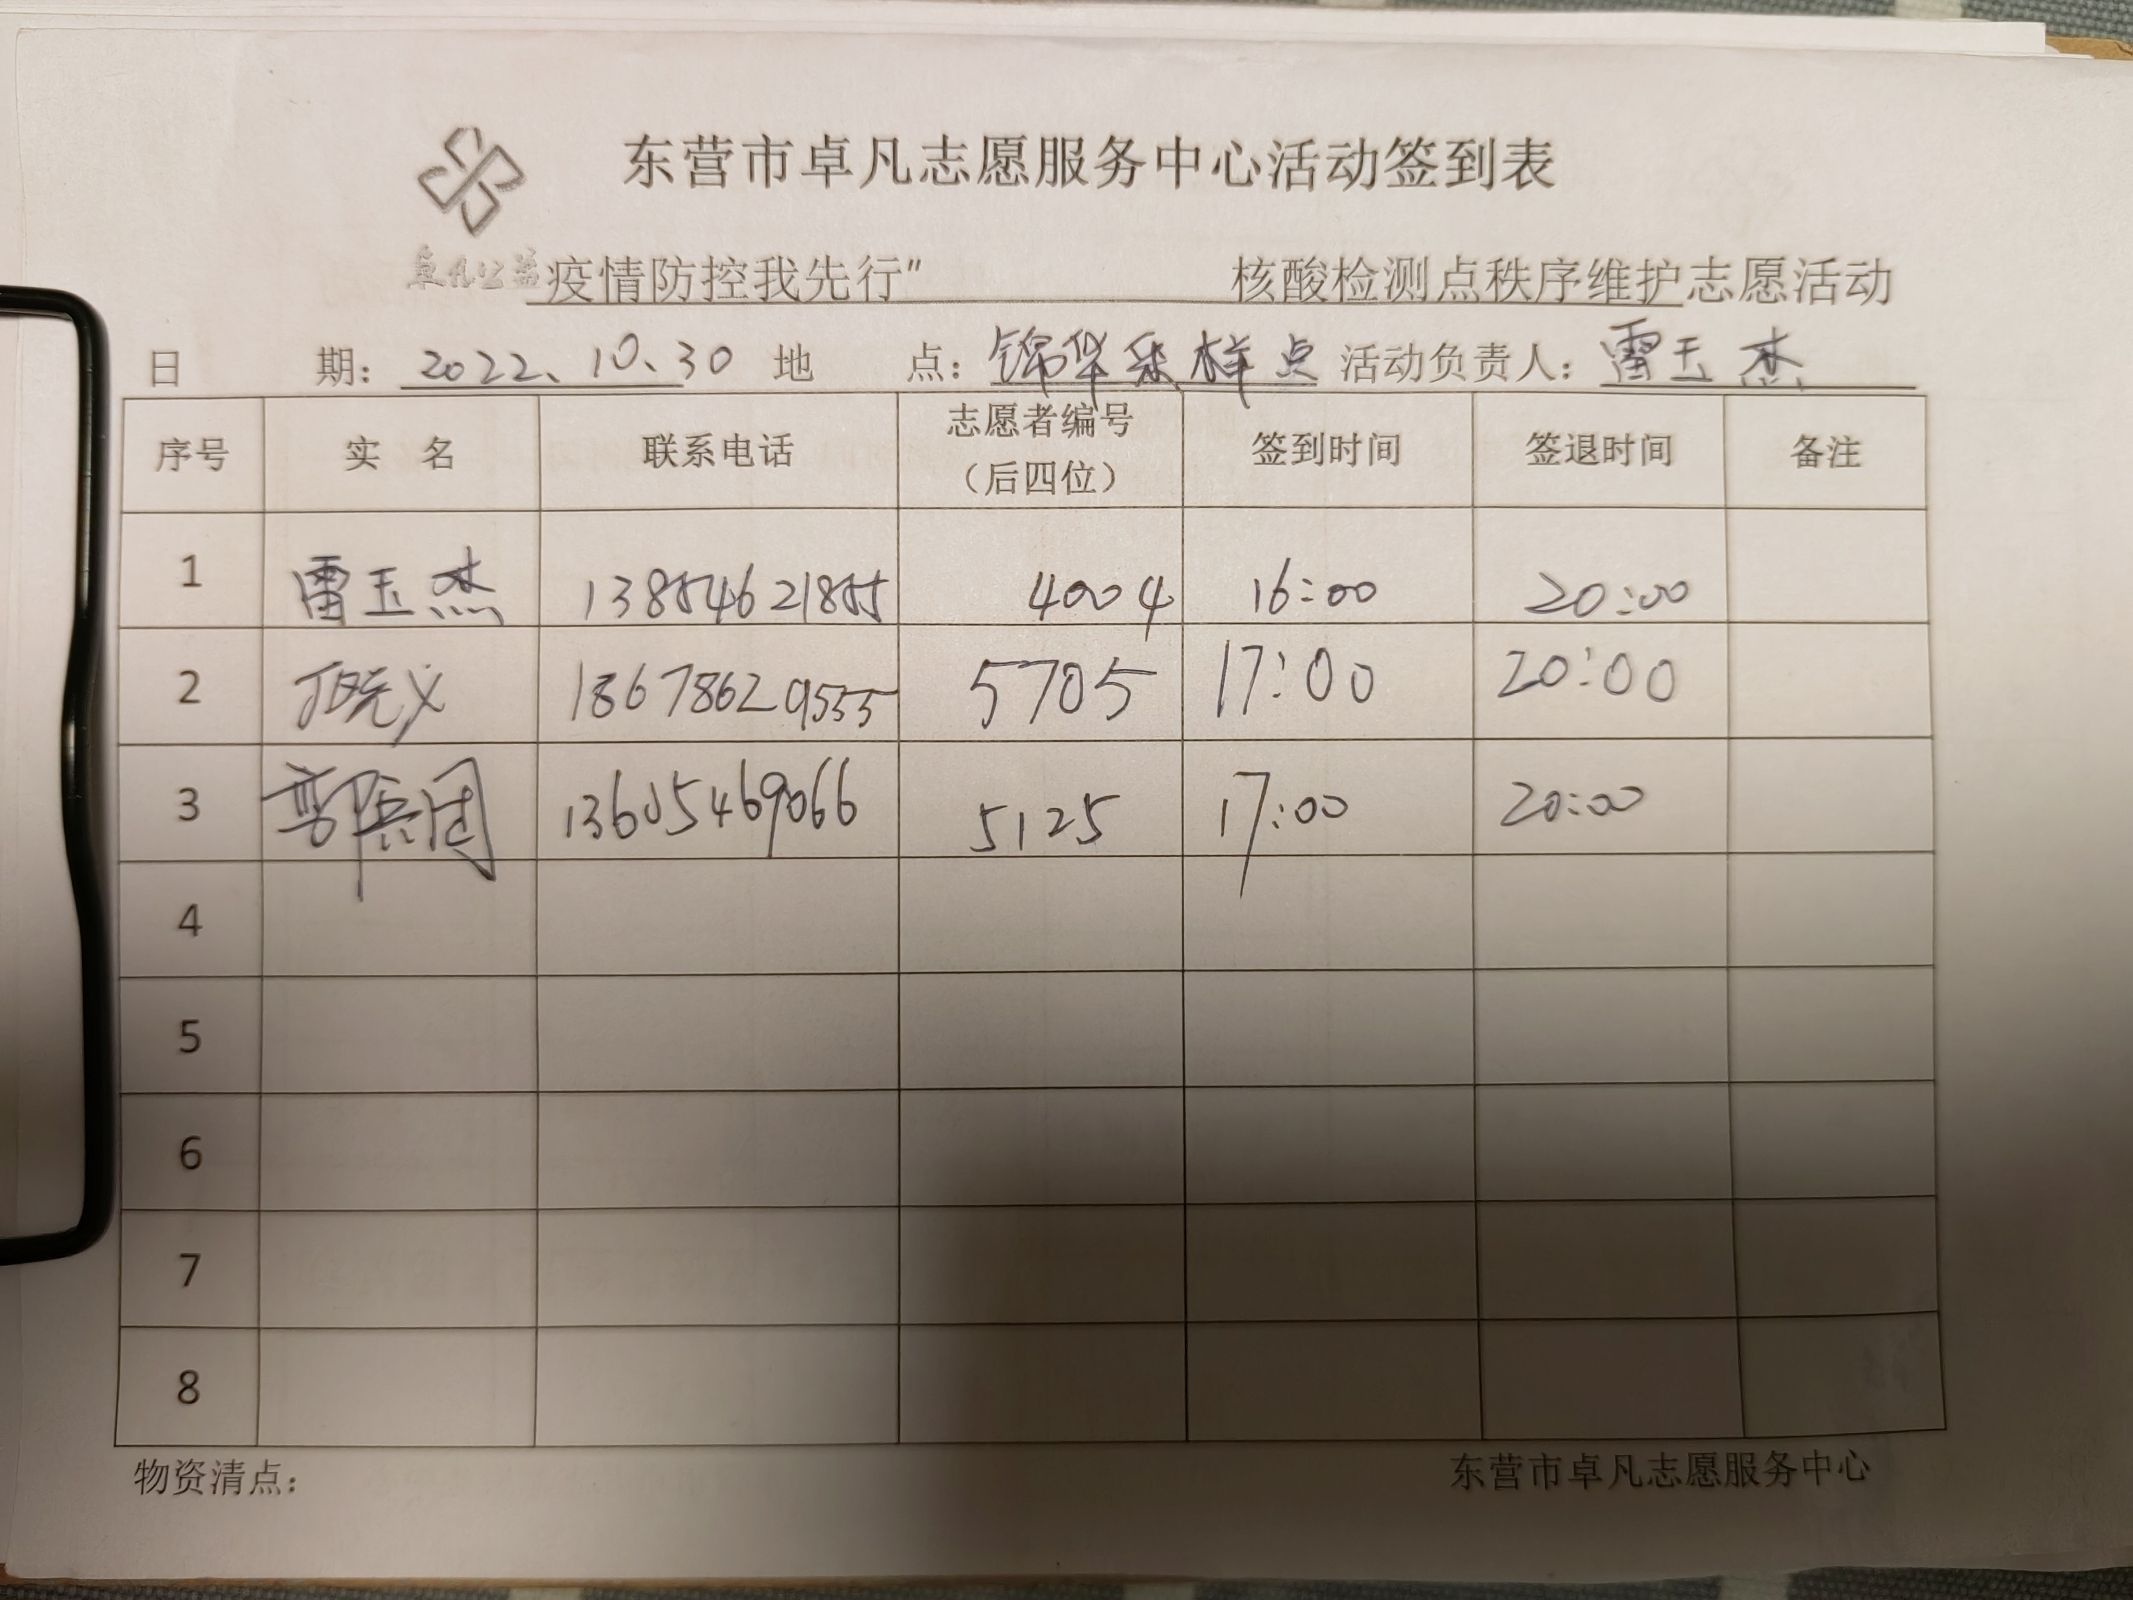 东营市卓凡志愿服务中心活动签到表
卓凡公益
疫情防控我先行" 核酸检测点秩序维护志愿活动
日 期: 2022、10、30 地 点: 锦华采样点 活动负责人: 雷玉杰
序号 实 名 联系电话 志愿者编号（后四位） 签到时间 签退时间 备注
1 雷玉杰 13854621855 4004 16:00 20:00
2 18678629555 5705 17:00 20:00
3 13605469066 5125 17:00 20:00
4
5
6
7
8
物资清点: 东营市卓凡志愿服务中心